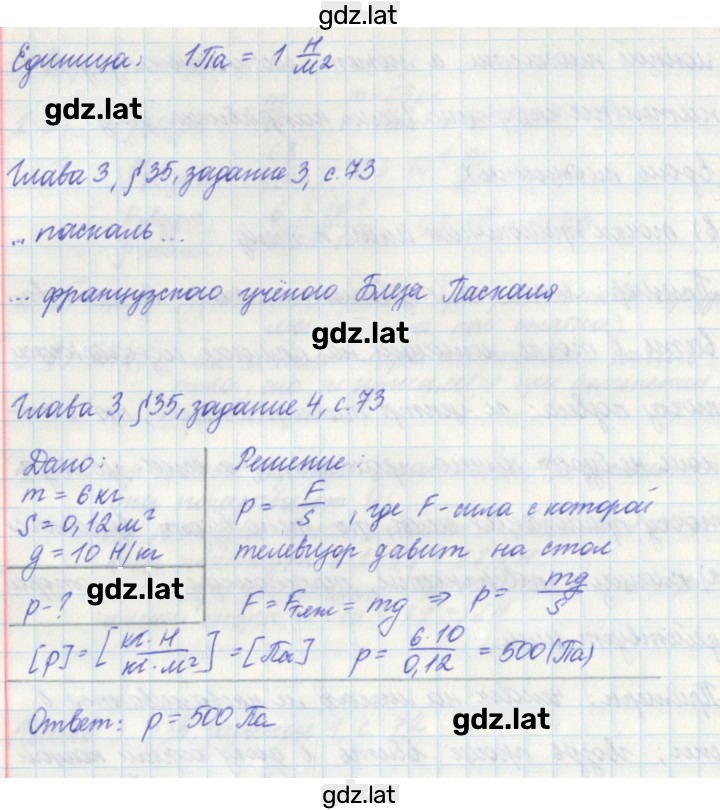 gdz.lat
Единица: 1Па = 1 Н/м²
gdz.lat
Глава 3, §35, задание 3, с.73
... паскаль...
... французского учёного Блеза Паскаля
gdz.lat
Глава 3, §35, задание 4, с.73
Дано:
m = 6 кг
S = 0,12 м²
g = 10 Н/кг
p - ?
gdz.lat
Решение:
p = F/S, где F - сила с которой
телевизор давит на стол
F = Fтяж = mg ⇒ p = mg/S
[p] = [кг·Н/кг·м²] = [Па] p = 6·10/0,12 = 500 (Па)
Ответ: p = 500 Па
gdz.lat
gdz.lat